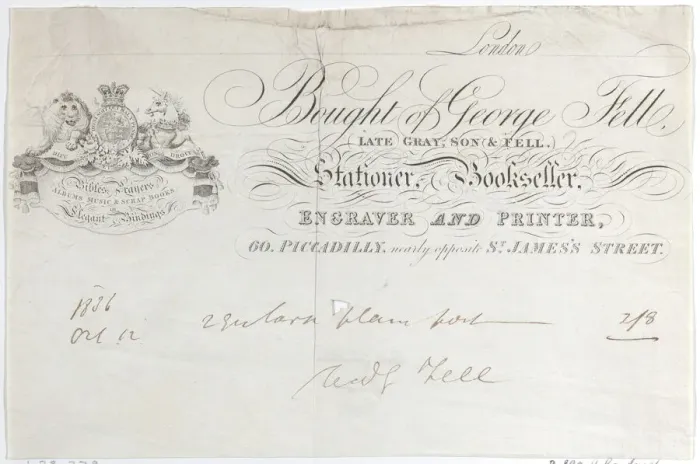 London
Bought of George Fell.
(LATE GRAY, SON & FELL.)
Stationer, Bookseller,
ENGRAVER AND PRINTER,
60. PICCADILLY, nearly opposite St. JAMES'S STREET.
DIEU DROIT
Bibles, Prayers
ALBUMS MUSIC & SCRAP BOOKS
Elegant Bindings
1836
Oct 12 plain post 2/8
Fell